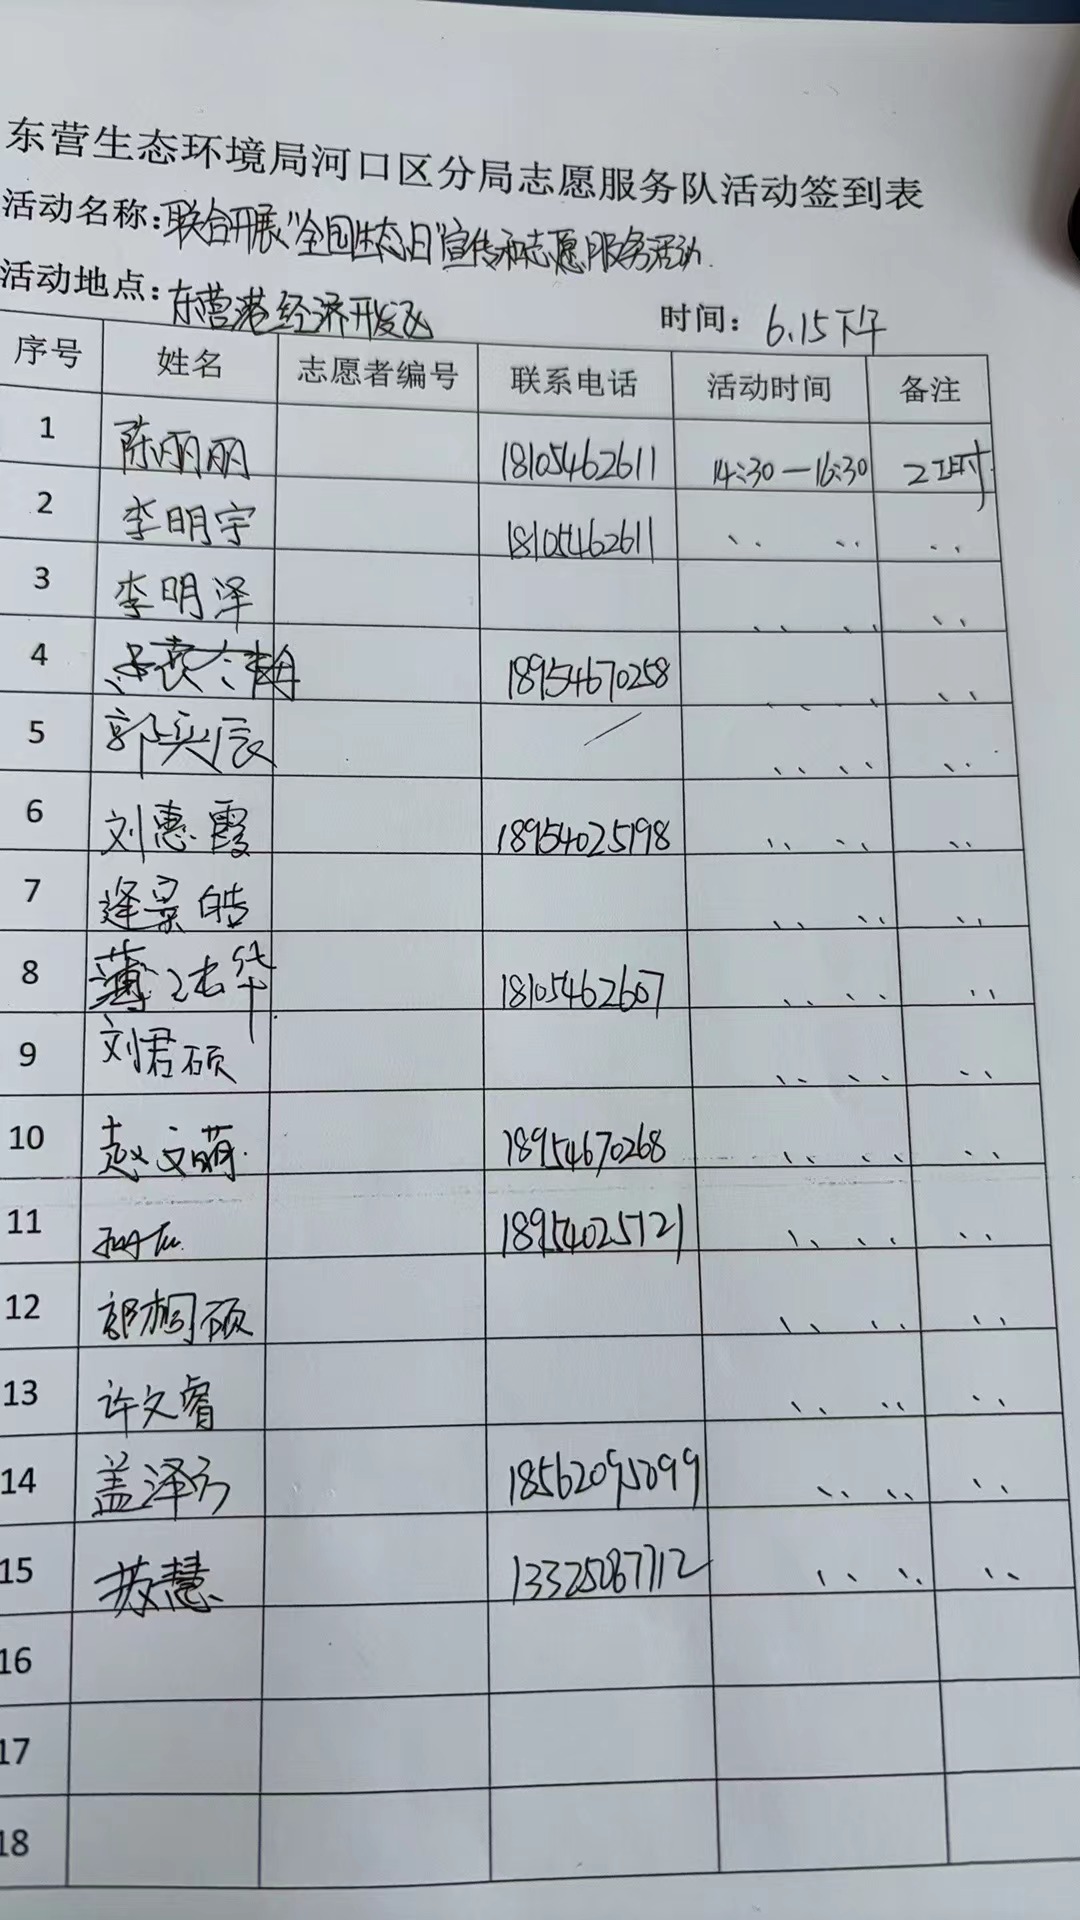 东营生态环境局河口区分局志愿服务队活动签到表
活动名称:联合开展"全国生态日"宣传和志愿服务活动.
活动地点:东营港经济开发区 时间:6.15下午
序号 姓名 志愿者编号 联系电话 活动时间 备注
1 陈丽丽 18105462611 14:30—16:30 2工时
2 李明宇 18105462611 、、 、、 、、
3 李明泽 、、 、、 、、
4 18954670258 、、 、 、、
5 郭奕辰 / 、、 、、 、、
6 刘惠霞 18954025198 、、 、、 、、
7 逄景皓 、、 、、 、、
8 薄 华 18105462607 、、 、、 、、
9 刘君硕 、、 、、 、、
10 赵文萌 18954670268 、、 、、 、、
11 18954025121 、、 、、 、、
12 郭桐硕 、、 、、 、、
13 许文睿 、、 、、 、、
14 盖泽 18562095099 、、 、、 、、
15 苏慧 13325087712 、、 、、 、、
16
17
18